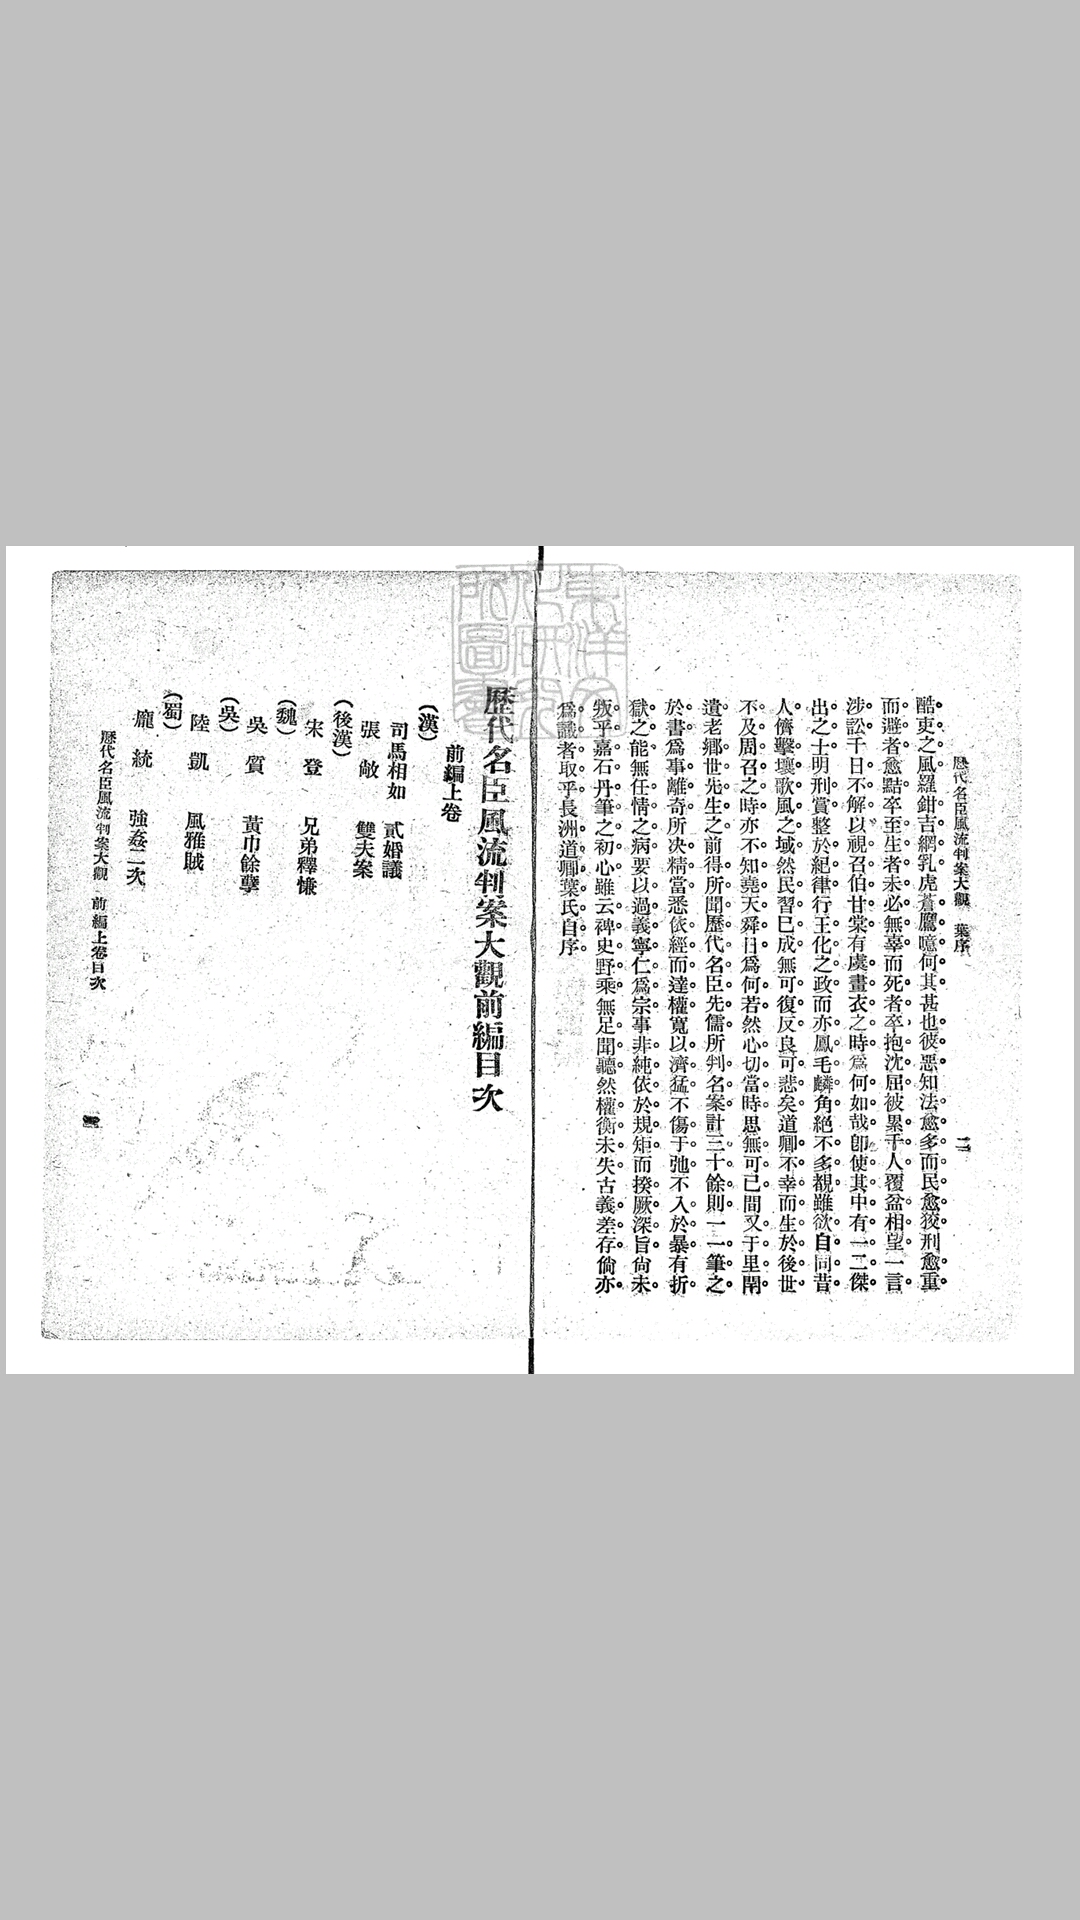 歷代名臣風流判案大觀　葉序　二
酷吏之風羅鉗吉網乳虎蒼鷹噫何其甚也彼惡知法愈多而民愈狡刑愈重
而避者愈黠卒至生者未必無辜而死者卒抱沈屈被累千人覆盆相望一言
涉訟千日不解以視召伯甘棠有虞畫衣之時爲何如哉卽使其中有一二傑
出之士明刑賞整於紀律行王化之政而亦鳳毛麟角絕不多覯雖欲自同昔
人儕擊壤歌風之域然民習已成無可復反良可悲矣道卿不幸而生於後世
不及周召之時亦不知堯天舜日爲何若然心切當時思無可已間又于里閈
遺老鄉世先生之前得所聞歷代名臣先儒所判名案計三十餘則一一筆之
於書爲事離奇所決精當悉依經而達權寬以濟猛不傷于弛不入於暴有折
獄之能無任情之病要以過義寧仁爲宗事非純依於規矩而揆厥深旨尙未
叛乎嘉石丹筆之初心雖云稗史野乘無足聞聽然權衡未失古義差存倘亦
爲識者取乎長洲道卿葉氏自序
歷代名臣風流判案大觀前編目次
前編上卷
（漢）
司馬相如　貳婚議
張敞　雙夫案
（後漢）
宋登　兄弟釋慊
（魏）
吳質　黃巾餘孽
（吳）
陸凱　風雅賊
（蜀）
龐統　強姦二次
歷代名臣風流判案大觀　前編上卷目次